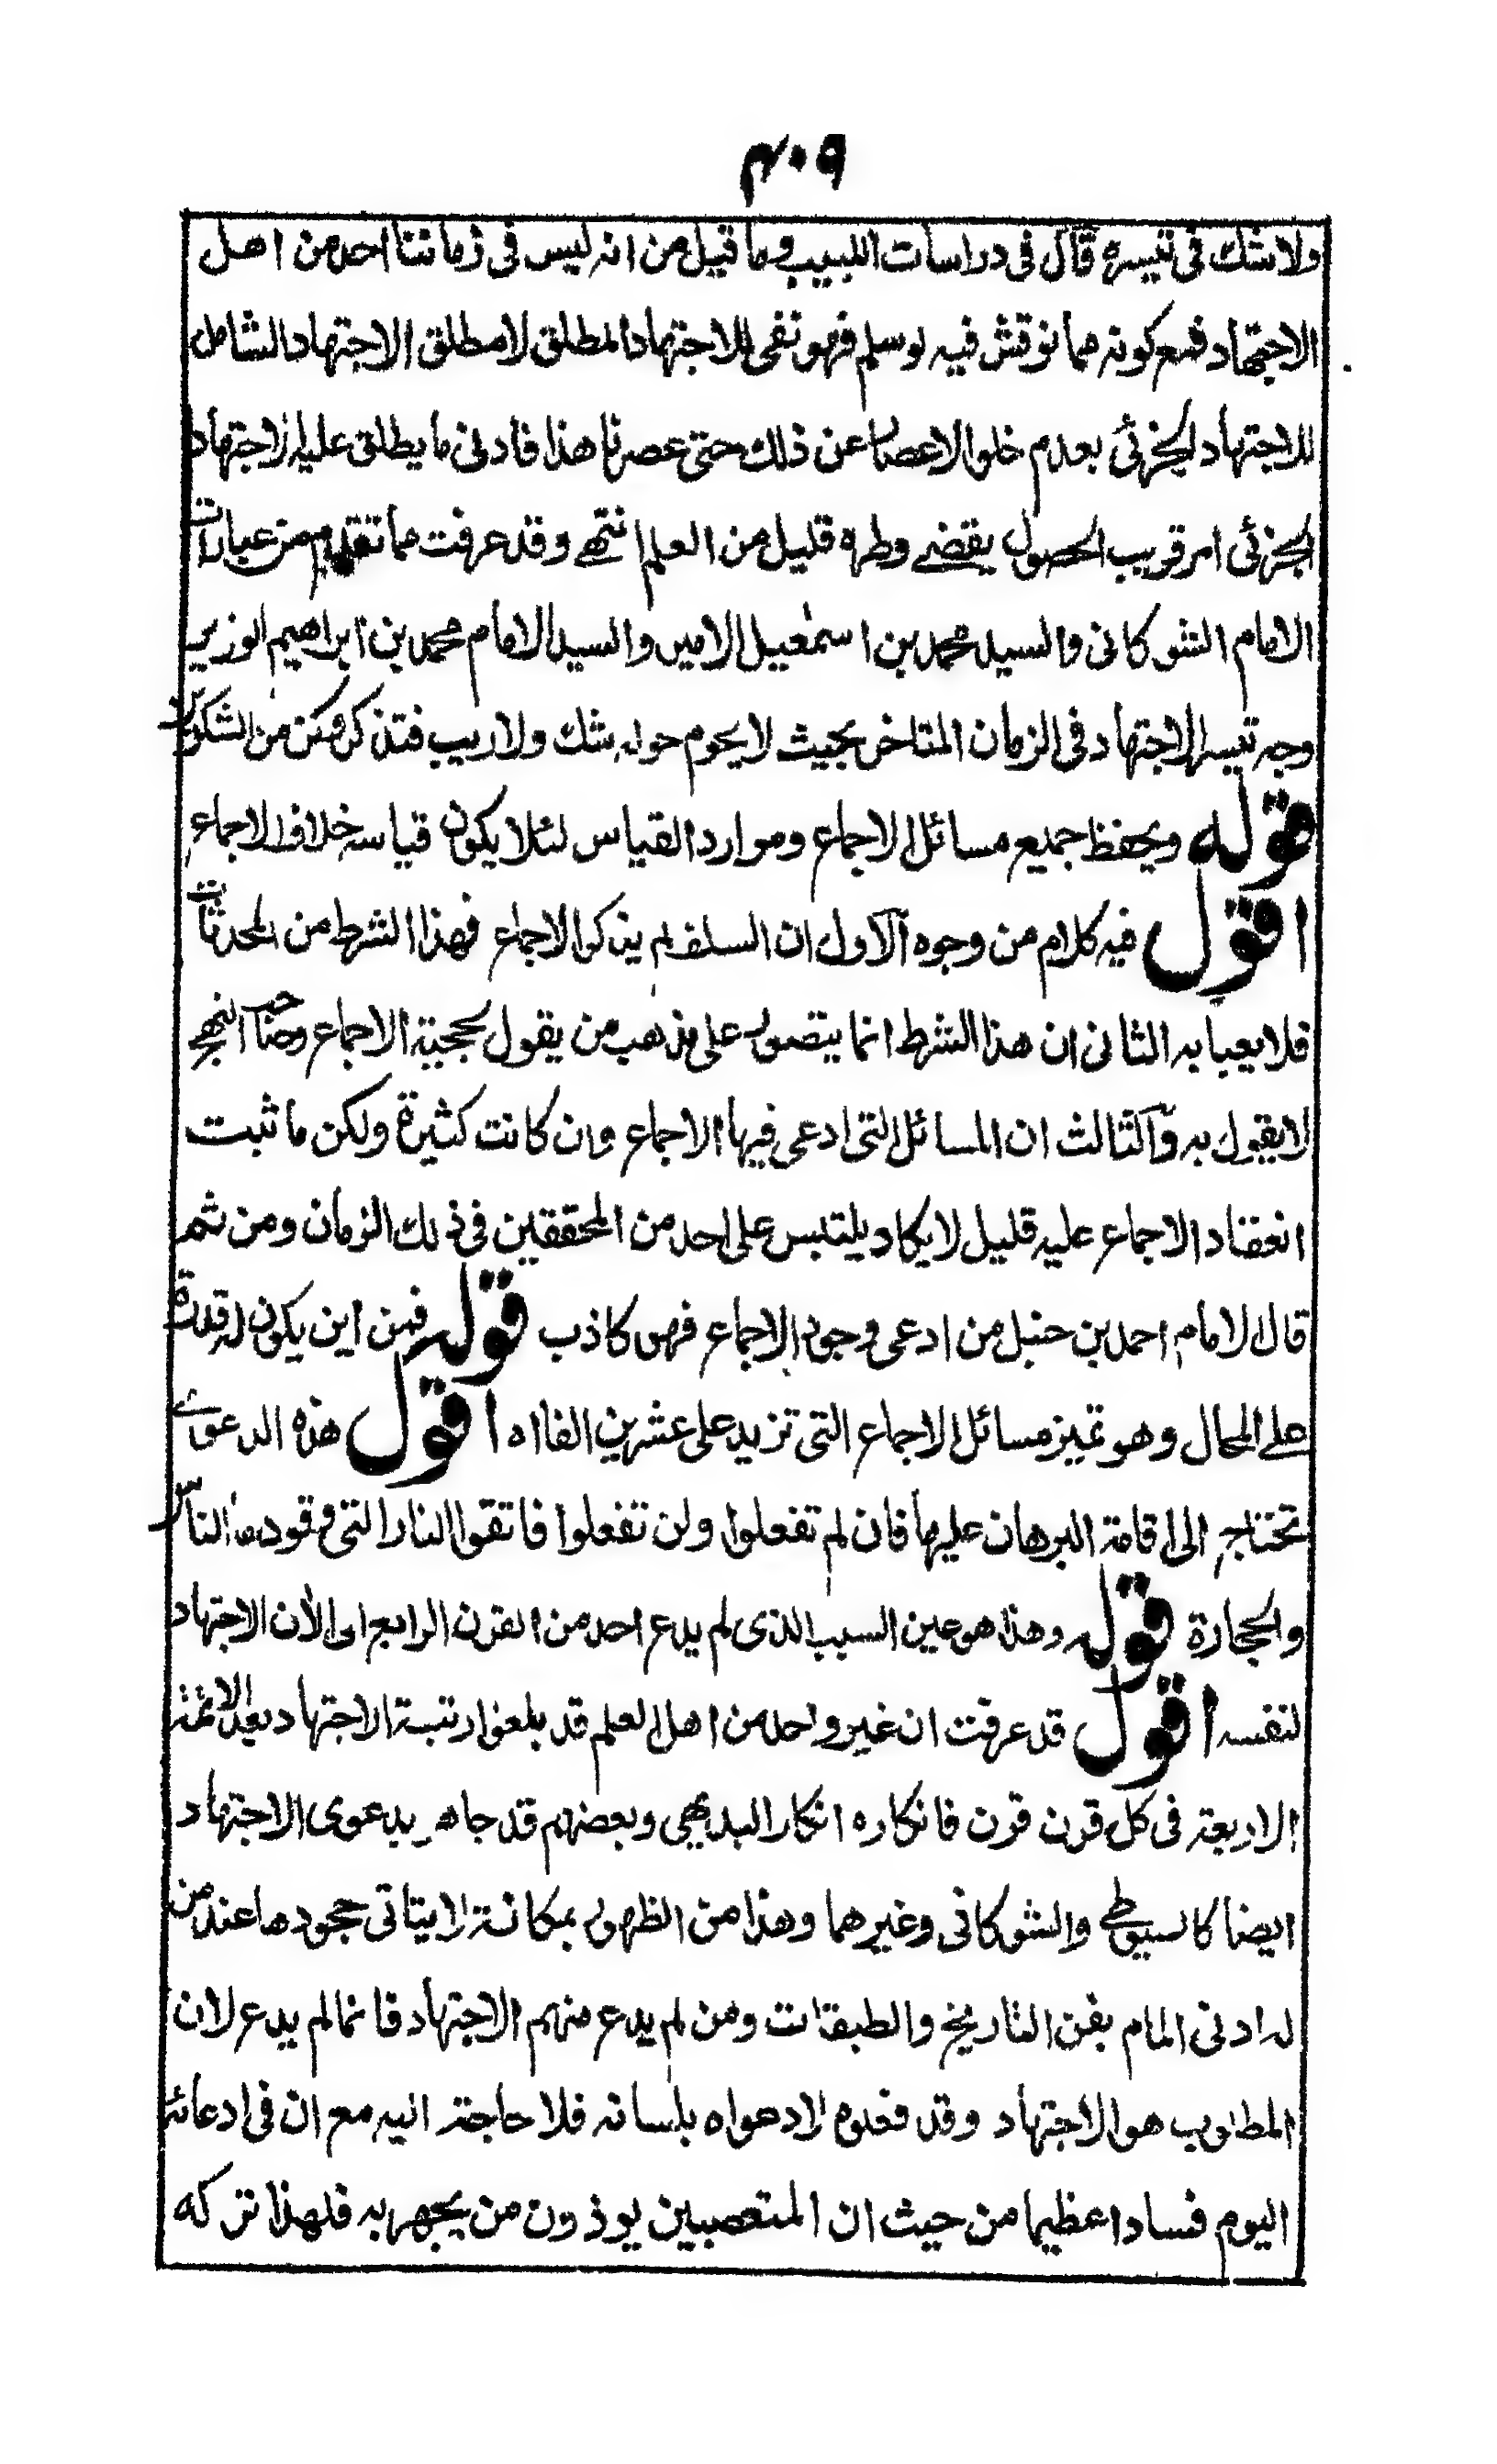 ٤٠٩
ولا شك فى تيسره قال فى دراسات اللبيب وما قيل من انه ليس فى زماننا احد من اهل
الاجتهاد فمع كونه مما نوقش فيه لو سلم فهو نفى للاجتهاد المطلق لا مطلق الاجتهاد الشامل
للاجتهاد الجزئى بعدم خلو الاعصار عن ذلك حتى عصرنا هذا فادنى ما يطلق عليه الاجتهاد
الجزئى امر قريب الحصول يقضے وطره قليل من العلم انتهى وقد عرفت مما تقدم من عبارات
الامام الشوكانى والسيد محمد بن اسمعيل الامير والسيد الامام محمد بن ابراهيم الوزير
وجه تيسر الاجتهاد فى الزمان المتاخر بحيث لا يحوم حوله شك ولا ريب فتذكر وكن من الشكرين
قوله ويحفظ جميع مسائل الاجماع وموارد القياس لئلا يكون قياسه خلاف الاجماع
اقول فيه كلام من وجوه الاول ان السلف لم يذكر الاجماع فهذا الشرط من المحدثات
فلا يعبا به الثانى ان هذا الشرط انما يتصور على مذهب من يقول بحجية الاجماع وصاحب النهج
لا يقول به والثالث ان المسائل التى ادعى فيها الاجماع وان كانت كثيرة ولكن ما ثبت
انعقاد الاجماع عليه قليل لا يكاد يلتبس على احد من المحققين فى ذلك الزمان ومن ثم
قال الامام احمد بن حنبل من ادعى وجود الاجماع فهو كاذب قوله فمن اين يكون له قدرة
على المحال وهو تميز مسائل الاجماع التى تزيد على عشرين الفا اه اقول هذه الدعوى
تحتاج الى اقامة البرهان عليها فان لم تفعلوا ولن تفعلوا فاتقوا النار التى وقودها الناس
والحجارة قوله وهذا هو عين السبب الذى لم يدع احد من القرن الرابع الى الأن الاجتهاد
لنفسه اقول قد عرفت ان غير واحد من اهل العلم قد بلغوا رتبة الاجتهاد بعد الائمة
الاربعة فى كل قرن قرن فانكاره انكار البديهى وبعضهم قد جاهر بدعوى الاجتهاد
ايضا كالسيوطے والشوكانى وغيرهما وهذا من الظهور بمكانة لا يتاتى جحودها عند من
له ادنى المام بفن التاريخ والطبقات ومن لم يدع منهم الاجتهاد فانما لم يدع لان
المطلوب هو الاجتهاد وقد فعلوه لا دعواه بلسانه فلا حاجة اليه مع ان فى ادعائه
اليوم فسادا عظيما من حيث ان المتعصبين يوذون من يجهر به فلهذا تركه